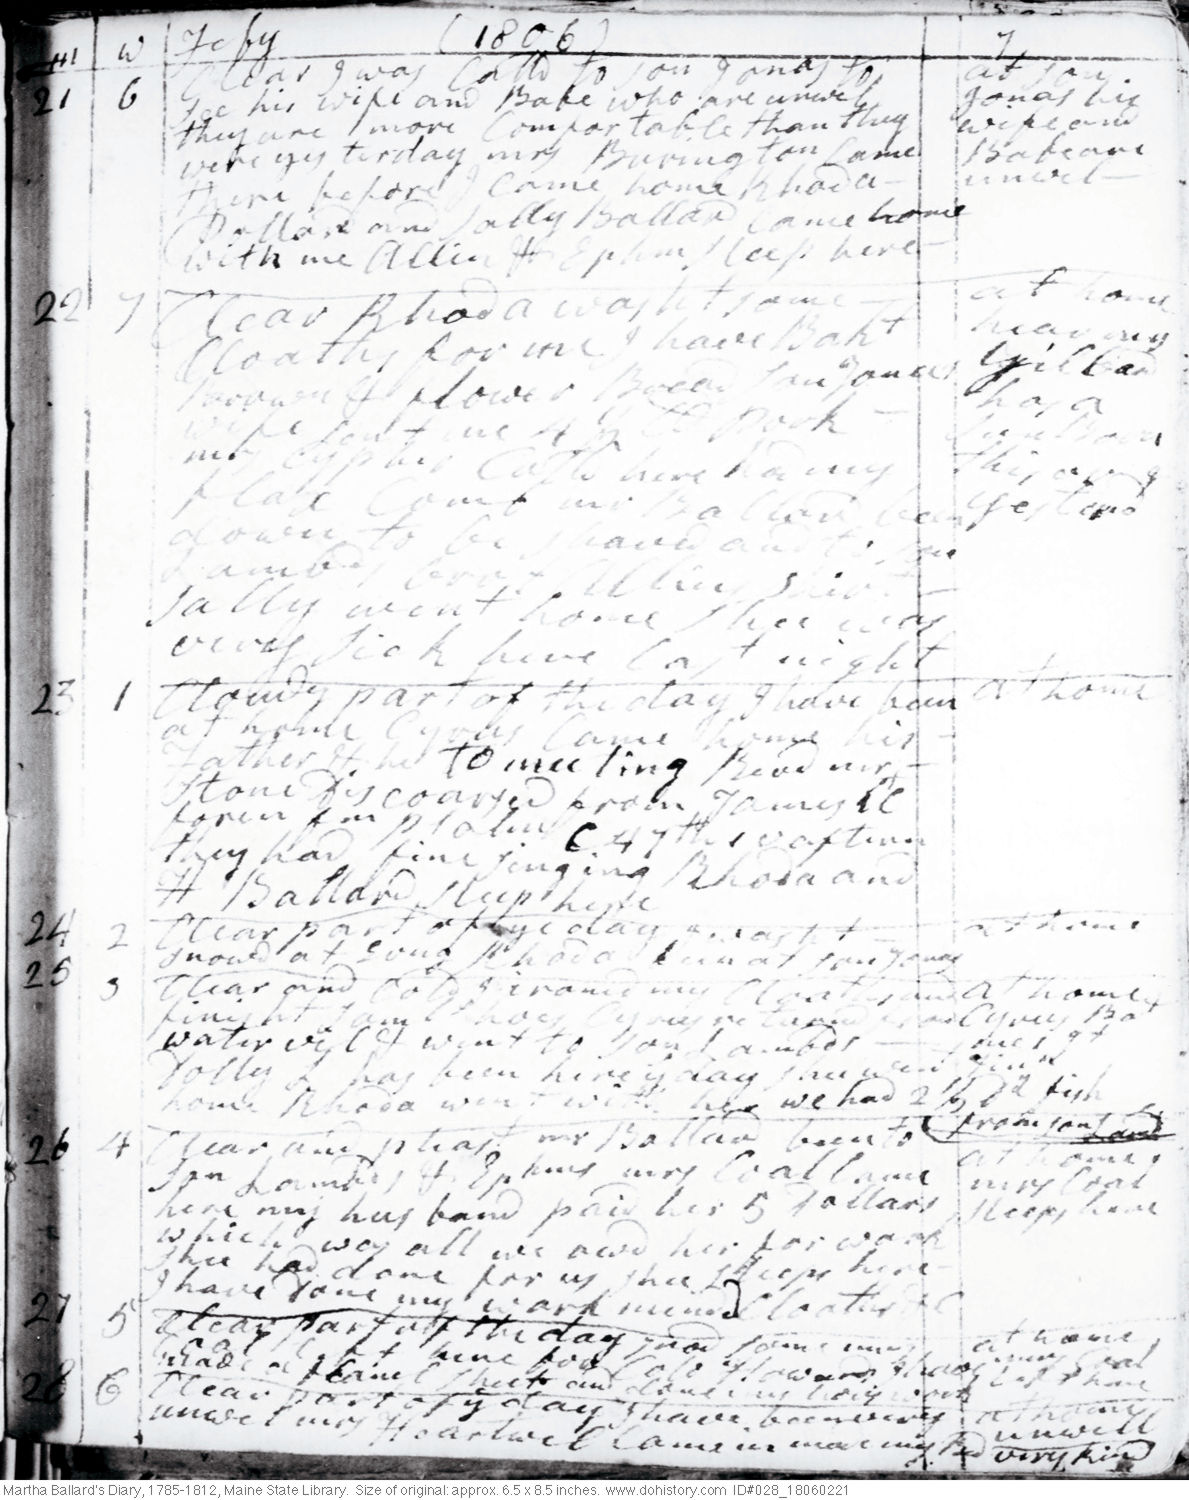 m w Feby (1806)
21 6 Clear I was Calld to son Jonas to
see his wife and Babe who are unwel
they are more Comfortable than they
were yesterday mrs Burington Came
there before I came home Rhoda
Pollard and Sally Ballard Came home
with me Allin & Ephm sleep here
at son
Jonas his
wife and
Babe are
unwel
22 7 Clear Rhoda washt some
Cloaths for me I have Bakt
brown & flower Bread son Jonas
wife sent me 4 lb Pork
mrs Cypher Calld here had my
flax Comb mr Ballard been
down to be shaved and to son
Lambds brot Allins shirt
Sally went home shee was
very sick here last night
at home
hear mrs
Gilbard
has a
son Born
this
yesterd
23 1 Cloudy part of the day I have been
at home Cyrus Came home his
Father & he to meeting Revd mr
Stone discoarsed from James
foren psalm C 47th aftern
they had fine singing Rhoda and
H Ballard sleep here
at home
24 2 Clear part of ye day
snowd at Evng Rhoda been at son Jonas
at home
25 3 Clear and Cold I ironed my Cloaths and
finisht some shoes Cyrus returnd from
water vil I went to son Lambds
Dolly L has been here ys day shee went
home Rhoda went with her we had 2 lb Dd fish
from son Lamd
at home
Cyrus Bot
me 1 qt
ginn
26 4 Clear and pleast mr Ballard been to
son Lambds & Ephms mrs Coal Came
here my husband paid her 5 Dollars
which was all we owd her for work
shee had done for us shee sleeps here
I have done my work mend Cloaths &C
at home
mrs Coal
sleeps here
27 5 Clear part of the day
Coal left here for
made a flanel sheet and done my hous work
at home
mrs Coal
left here
28 6 Clear part of ye day I have been very
unwel mrs Heartwel Came in made my Bed very kind
at home
unwell
Martha Ballard's Diary, 1785-1812, Maine State Library. Size of original: approx. 6.5 x 8.5 inches. www.dohistory.com ID#028_18060221